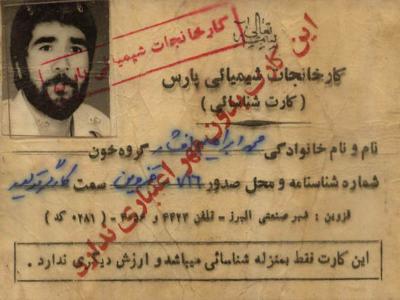 بسمه تعالی
کارخانجات شیمیائی پارس
کارخانجات شیمیائی پارس
( کارت شناسائی )
این کارت بدون مهر اعتباری ندارد
نام و نام خانوادگی محمد ابراهیم افشار گروه خون
شماره شناسنامه و محل صدور ۷۱۶ قزوین سمت کارگر تولید
قزوین : شهر صنعتی البرز - تلفن ۴۴۲۳ و ( ۰۲۸۱ کد )
این کارت فقط بمنزله شناسائی میباشد و ارزش دیگری ندارد .